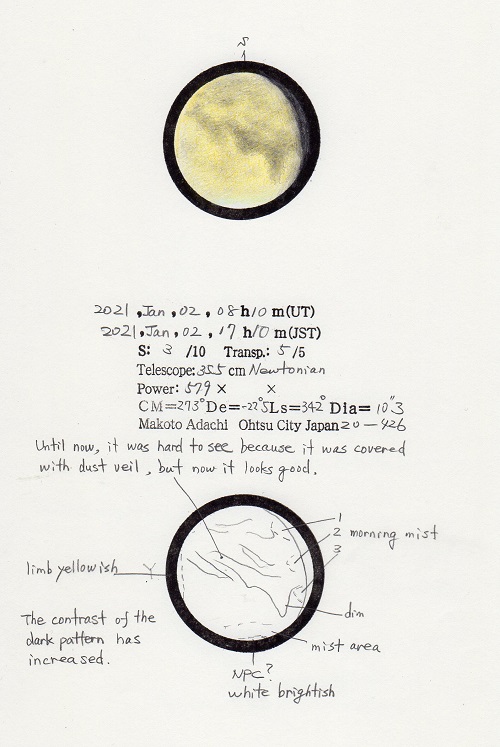 S
2021, Jan, 02, 08h10m(UT)
2021, Jan, 02, 17h10m(JST)
S: 3 /10 Transp.: 5/5
Telescope: 355 cm Newtonian
Power: 579 × ×
CM=273° De=-22.°5 Ls=342° Dia= 10."3
Makoto Adachi Ohtsu City Japan 20-426
Until now, it was hard to see because it was covered
with dust veil, but now it looks good.
1
2 morning mist
3
limb yellowish Y
dim
The contrast of the
dark pattern has
increased.
mist area
NPC?
white brightish